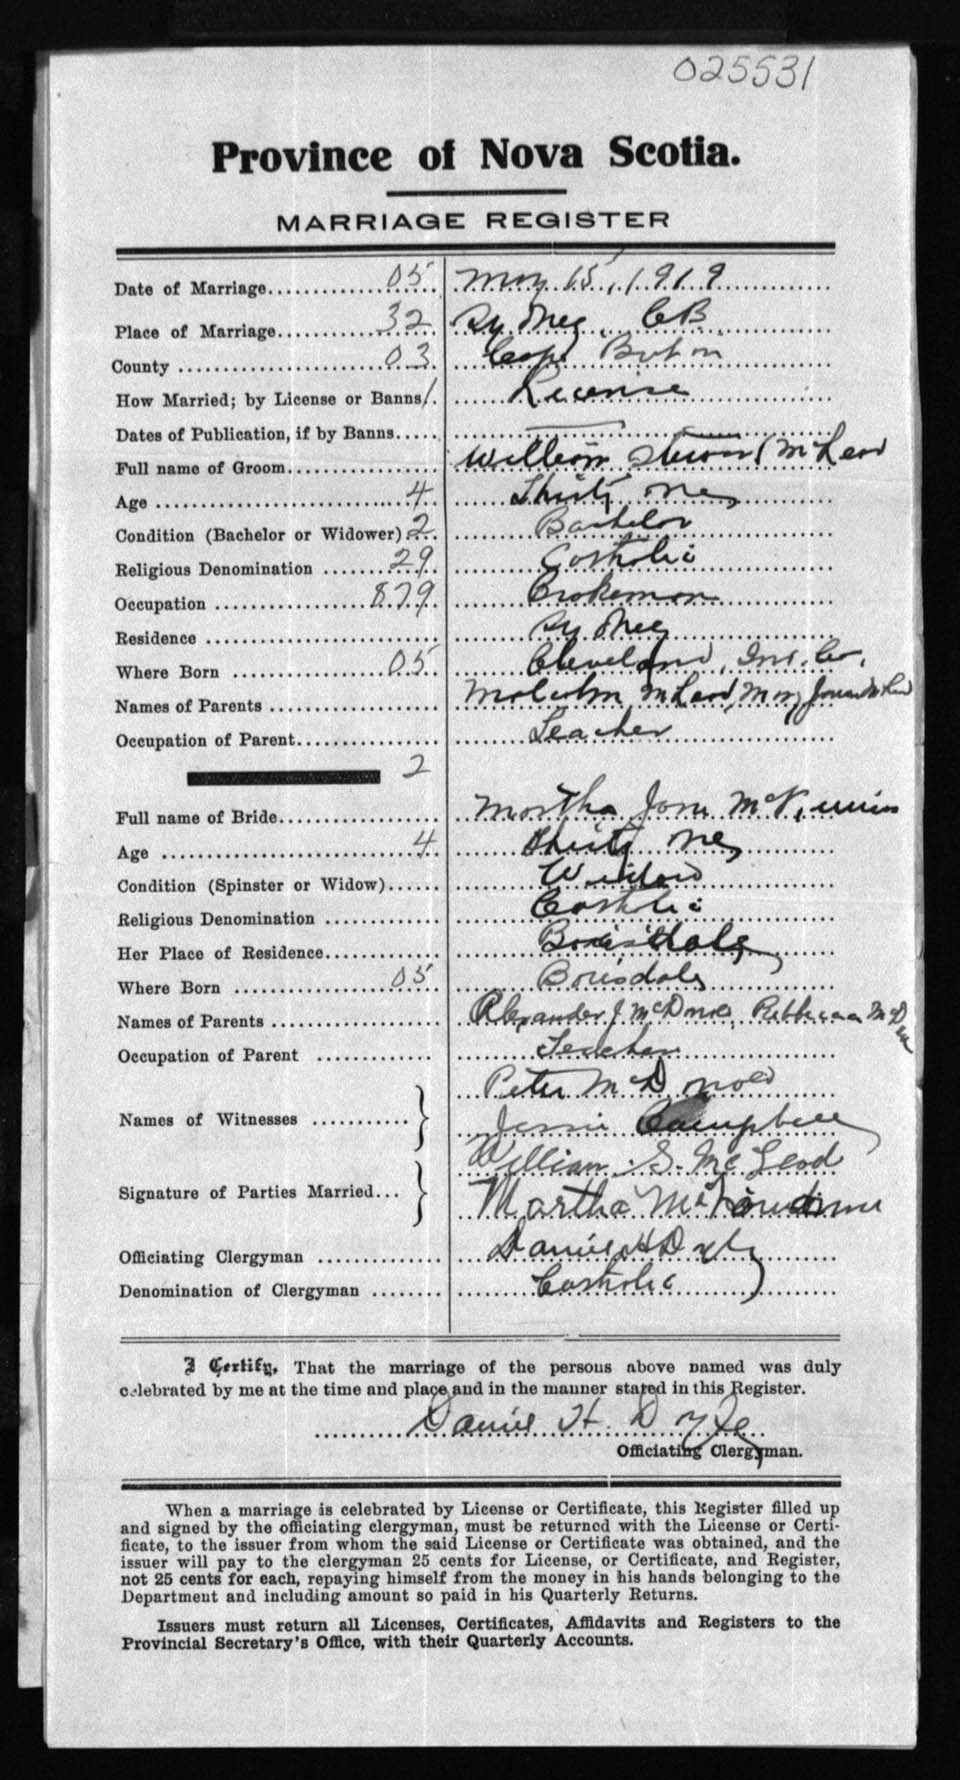 025531
Province of Nova Scotia.
MARRIAGE REGISTER
Date of Marriage 05 May 15, 1919
Place of Marriage 32 Sydney CB
County 03 Cape Breton
How Married; by License or Banns 1 License
Dates of Publication, if by Banns
Full name of Groom William Stewart McLeod
Age 4 Thirty one
Condition (Bachelor or Widower) 2 Bachelor
Religious Denomination 29 Catholic
Occupation 879 Brakeman
Residence Sydney
Where Born 05 Cleveland, Inv. Co.
Names of Parents Malcolm McLeod, Mary McLeod
Occupation of Parent Teacher
2
Full name of Bride Martha Jane
Age 4 Thirty one
Condition (Spinster or Widow) Widow
Religious Denomination Catholic
Her Place of Residence Boisdale
Where Born 05 Boisdale
Names of Parents Alexander J. Rebbecca
Occupation of Parent Teacher
Peter McDonald
Names of Witnesses
Jessie Campbell
William S. McLeod
Signature of Parties Married
Martha
Officiating Clergyman Daniel H Doyle
Denomination of Clergyman Catholic
I Certify, That the marriage of the persons above named was duly
celebrated by me at the time and place and in the manner stated in this Register.
Daniel H. Doyle
Officiating Clergyman.
When a marriage is celebrated by License or Certificate, this Register filled up
and signed by the officiating clergyman, must be returned with the License or Certi-
ficate, to the issuer from whom the said License or Certificate was obtained, and the
issuer will pay to the clergyman 25 cents for License, or Certificate, and Register,
not 25 cents for each, repaying himself from the money in his hands belonging to the
Department and including amount so paid in his Quarterly Returns.
Issuers must return all Licenses, Certificates, Affidavits and Registers to the
Provincial Secretary's Office, with their Quarterly Accounts.